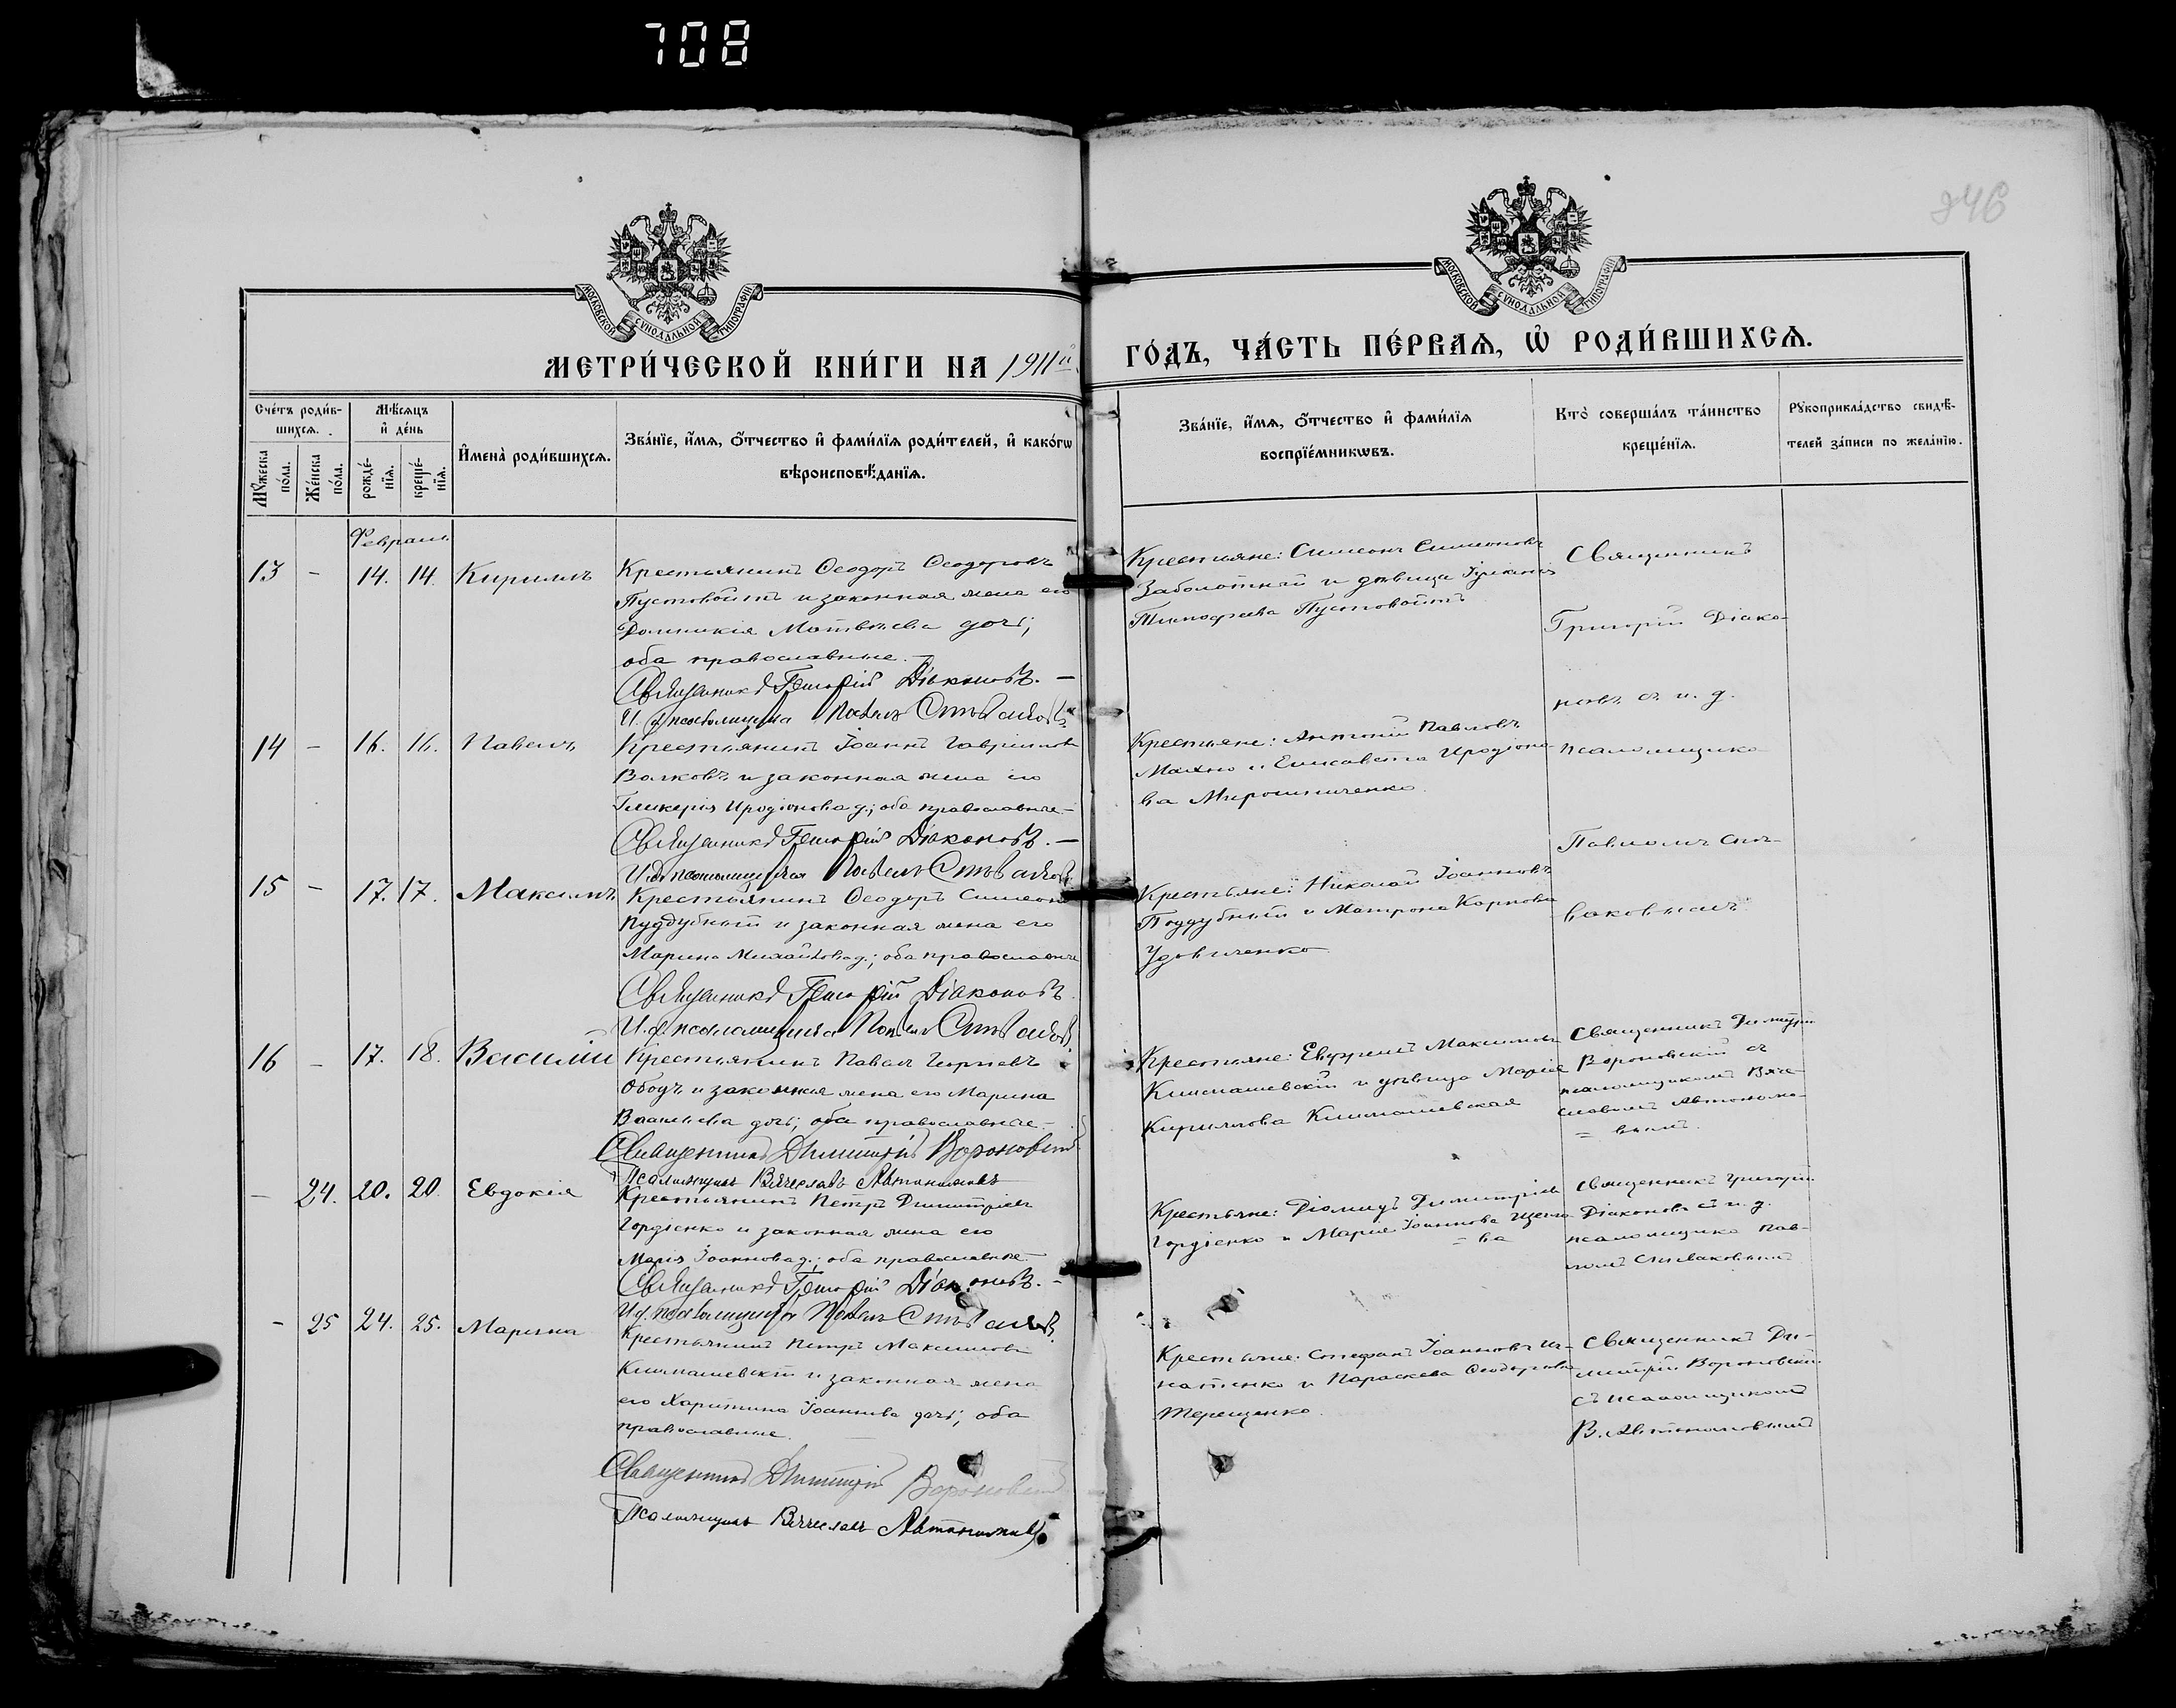 708
246
МОСКОВСКОЙ СѴНОДАЛЬНОЙ ТИПОГРАФІИ
МОСКОВСКОЙ СѴНОДАЛЬНОЙ ТИПОГРАФІИ
МЕТРИ́ЧЕСКОЙ КНИ́ГИ НА 1911й
ГО́ДЪ, ЧА́СТЬ ПЕ́РВАѦ, Ѽ РОДИ́ВШИХСѦ.
Сче́тъ роди́в-
шихсѧ.
Мꙋ́жеска по́ла.
Же́нска по́ла.
Мѣ́сѧцъ
и҆ де́нь
рожде́-
нїѧ.
креще́-
нїѧ.
И҆мена̀ роди́вшихсѧ.
Зва́нїе, и҆́мѧ, ѻ҆́тчество и҆ фами́лїѧ роди́телей, и҆ како́гѡ
вѣроисповѣ́данїѧ.
Зва́нїе, и҆́мѧ, ѻ҆́тчество и҆ фами́лїѧ
воспрїе́мникѡвъ.
Кто̀ соверша́лъ та́инство
креще́нїѧ.
Рꙋкоприкла́дство свидѣ́-
телей за́писи по жела́нїю.
Февраль
13 – 14. 14. Кириллъ
Крестьянинъ Ѳеодоръ Ѳеодоровъ
Пустовойтъ и законная жена его
Домникія Матвѣева дочь;
оба православные.
Священникъ Григорій Діаконовъ. –
И. д. псаломщика Павелъ Спиваковъ
Крестьяне: Симеонъ Симеоновъ
Заболотный и дѣвица Іуліанія
Тимофеева Пустовойтъ
Священникъ
Григорій Діако-
новъ съ и. д.
псаломщика
Павломъ Спи-
ваковымъ
14 – 16. 16. Павелъ
Крестьянинъ Іоаннъ Гавриловъ
Волковъ и законная жена его
Гликерія Иродіонова д.; оба православные –
Священникъ Григорій Діаконовъ. –
И. д. псаломщика Павелъ Спиваковъ
Крестьяне: Антоній Павловъ
Махно и Елисавета Иродіоно-
ва Мирошниченко
15 – 17. 17. Максимъ
Крестьянинъ Ѳеодоръ Симеоновъ
Пуддубный и законная жена его
Марина Михайлова д.; оба православные
Священникъ Григорій Діаконовъ
И. д. псаломщика Павелъ Спиваковъ
Крестьяне: Николай Іоанновъ
Поддубный и Матрона Карпова
Удовиченко
16 – 17. 18. Василій
Крестьянинъ Павелъ Георгіевъ
Ободъ и законная жена его Марина
Васильева дочь; оба православные. –
Священникъ Димитрій Вороновскій
Псаломщикъ Вячеславъ Автономовъ
Крестьяне: Евфремъ Максимовъ
Климашевскій и дѣвица Марія
Кириллова Климашевская
Священникъ Димитрій
Вороновскій съ
псаломщикомъ Вяче-
славомъ Автономо-
= вымъ.
– 24. 20. 20. Евдокія
Крестьянинъ Петръ Димитріевъ
Гордіенко и законная жена его
Марія Іоаннова д.; оба православные
Священникъ Григорій Діаконовъ. –
И. д. псаломщика Павелъ Спиваковъ
Крестьяне: Діомидъ Димитріевъ
Гордіенко и Марія Іоаннова
= ва
Священникъ Григорій
Діаконовъ съ и. д.
псаломщика Пав-
ломъ Спиваковымъ
– 25 24. 25. Марина
Крестьянинъ Петръ Максимовъ
Климашевскій и законная жена
его Харитина Іоаннова дочь; оба
православные.
Священникъ Димитрій Вороновскій
Псаломщикъ Вячеславъ Автономовъ
Крестьяне: Стефанъ Іоанновъ Иг-
натенко и Параскева Ѳеодорова
Терещенко.
Священникъ Ди-
митрій Вороновскій
съ псаломщикомъ
В. Автономовымъ